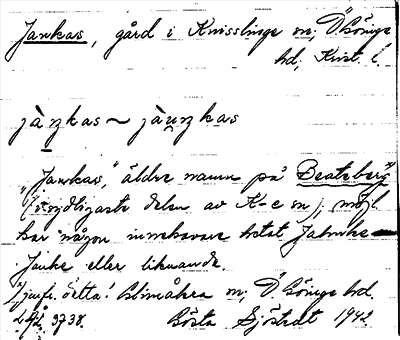 Jankas, gård i Kvisslinge sn; Ö. Göinge
hd, Krist. l.
jàŋkas ~ jàuŋkas
"Jankas," äldre namn på Beateberg
(sydligaste delen av K-e sn); möjl.
har någon innehavare hetat Jahnke
Janke eller liknande.
Jämf. detta! Glimåkra sn; Ö. Göinge hd.
3738. Gösta Sjöstedt 1942